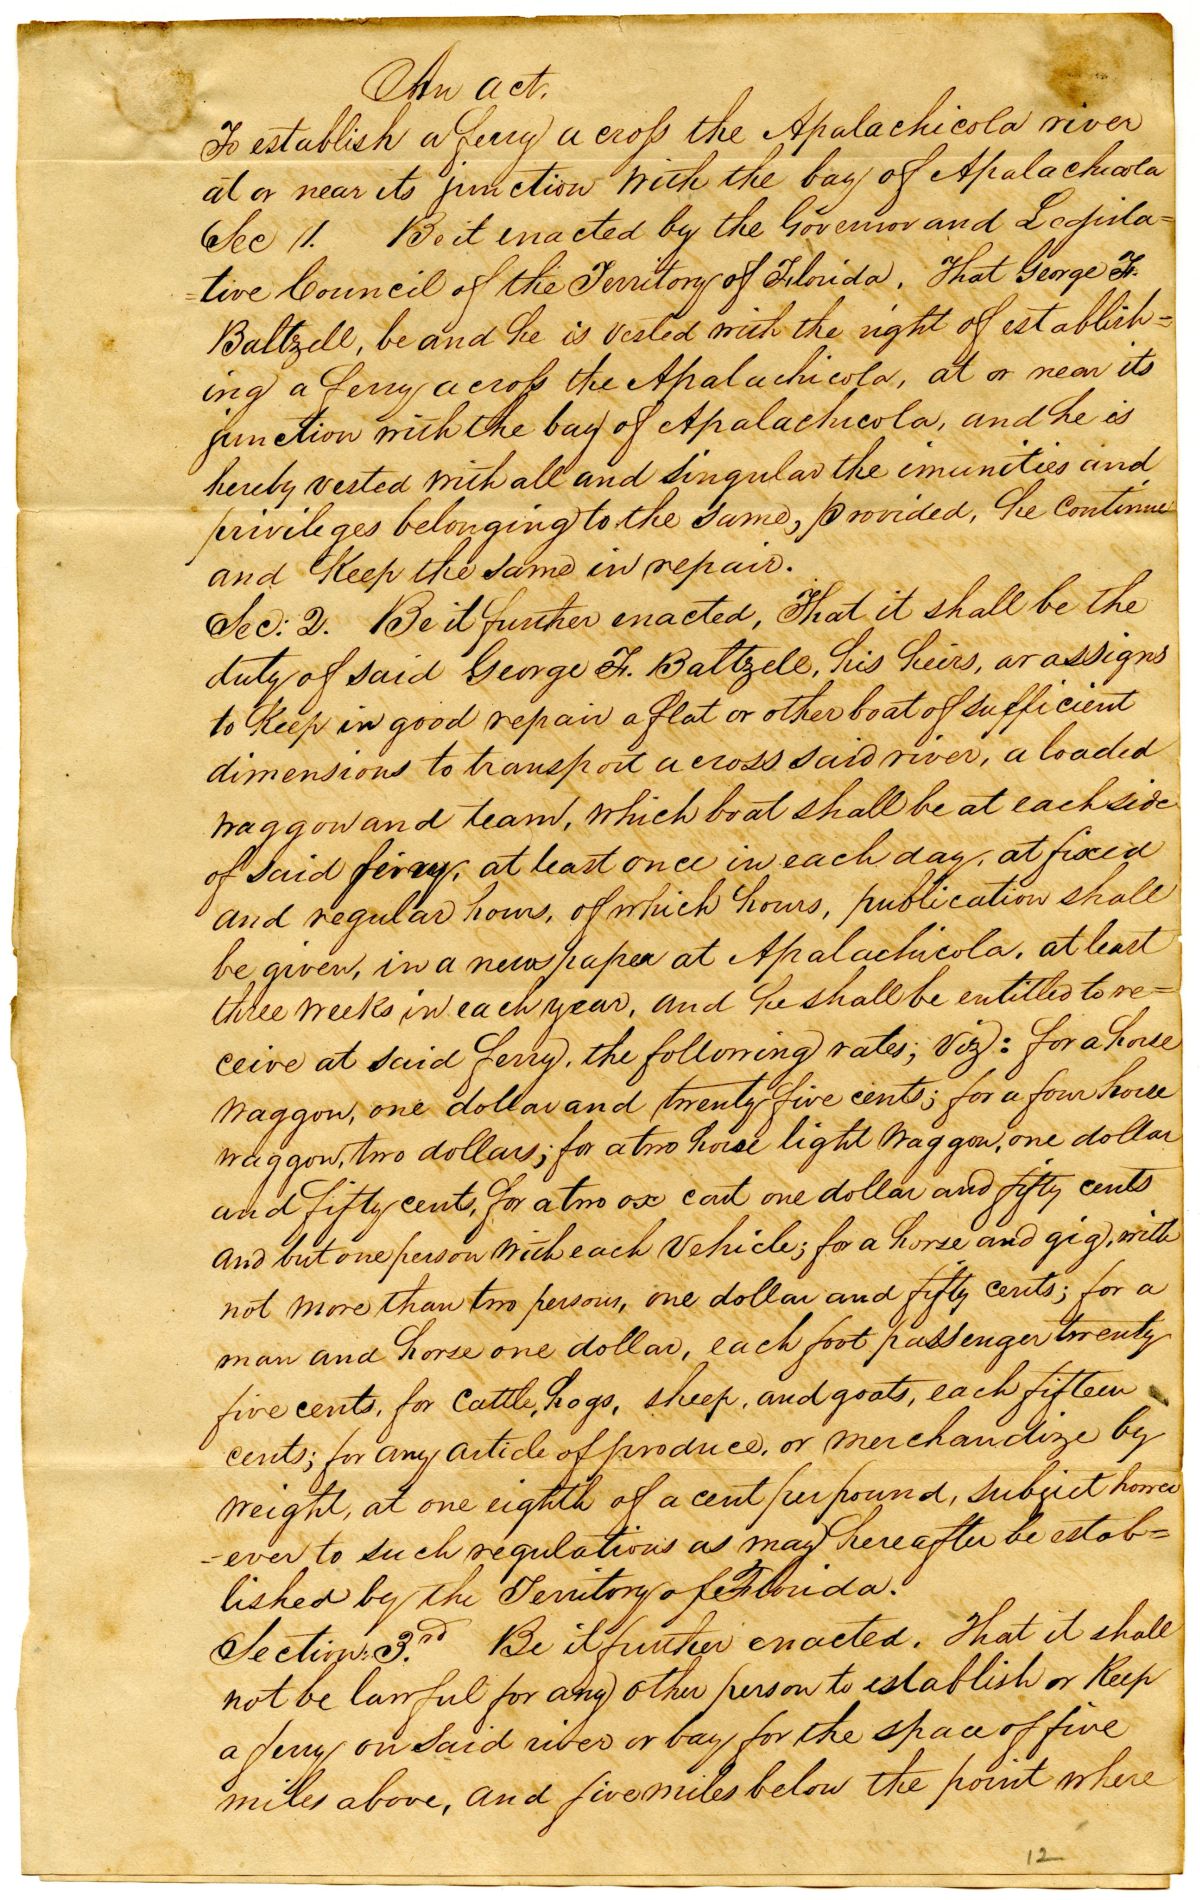 An act.
To establish a ferry across the Apalachicola river
at or near its junction with the bay of Apalachicola
Sec 1. Be it enacted by the Governor and Legisla=
=tive Council of the Territory of Florida, That George F.
Baltzell, be and he is vested with the right of establish=
ing a ferry across the Apalachicola, at or near its
junction with the bay of Apalachicola, and he is
hereby vested with all and singular the imunities and
privileges belonging to the same, provided, he continue
and keep the same in repair.
Sec: 2. Be it further enacted, That it shall be the
duty of said George F. Baltzell, his heirs, or assigns
to keep in good repair a flat or other boat of sufficient
dimensions to transport across said river, a loaded
waggon and team, which boat shall be at each side
of said ferry, at least once in each day, at fixed
and regular hours, of which hours, publication shall
be given, in a newspaper at Apalachicola, at least
three weeks in each year, and he shall be entitled to re=
ceive at said ferry, the following rates; viz: for a horse
waggon, one dollar and twenty five cents; for a four horse
waggon, two dollars; for a two horse light waggon, one dollar
and fifty cents, for a two ox cart one dollar and fifty cents
and but one person with each vehicle; for a horse and gig, with
not more than two persons, one dollar and fifty cents; for a
man and horse one dollar, each foot passenger twenty
five cents, for cattle, hogs, sheep, and goats, each fifteen
cents; for any article of produce, or merchandize by
weight, at one eighth of a cent per pound, subject however
=ever to such regulations as may hereafter be estab=
lished by the Territory of Florida.
Section: 3.rd Be it further enacted, That it shall
not be lawful for any other person to establish or keep
a ferry on said river or bay for the space of five
miles above, and five miles below the point where
12